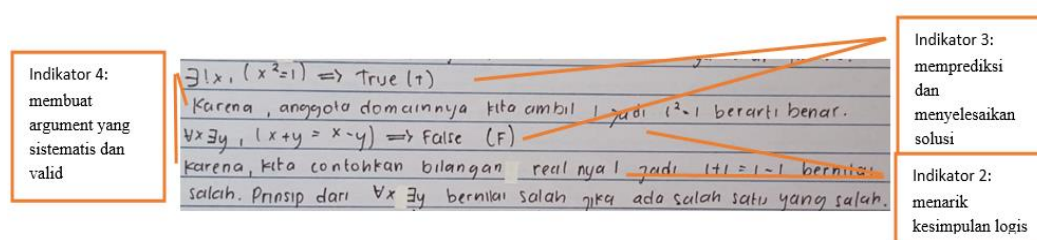 Indikator 4:
membuat
argument yang
sistematis dan
valid
∃!x, (x²=1) => True (T)
Karena, anggota domainnya kita ambil 1 jadi 1²=1 berarti benar.
∀x∃y, (x+y = x-y) => False (F)
karena, kita contohkan bilangan real nya 1 jadi 1+1 = 1-1 bernilai
salah. Prinsip dari ∀x ∃y bernilai salah jika ada salah satu yang salah.
Indikator 3:
memprediksi
dan
menyelesaikan
solusi
Indikator 2:
menarik
kesimpulan logis